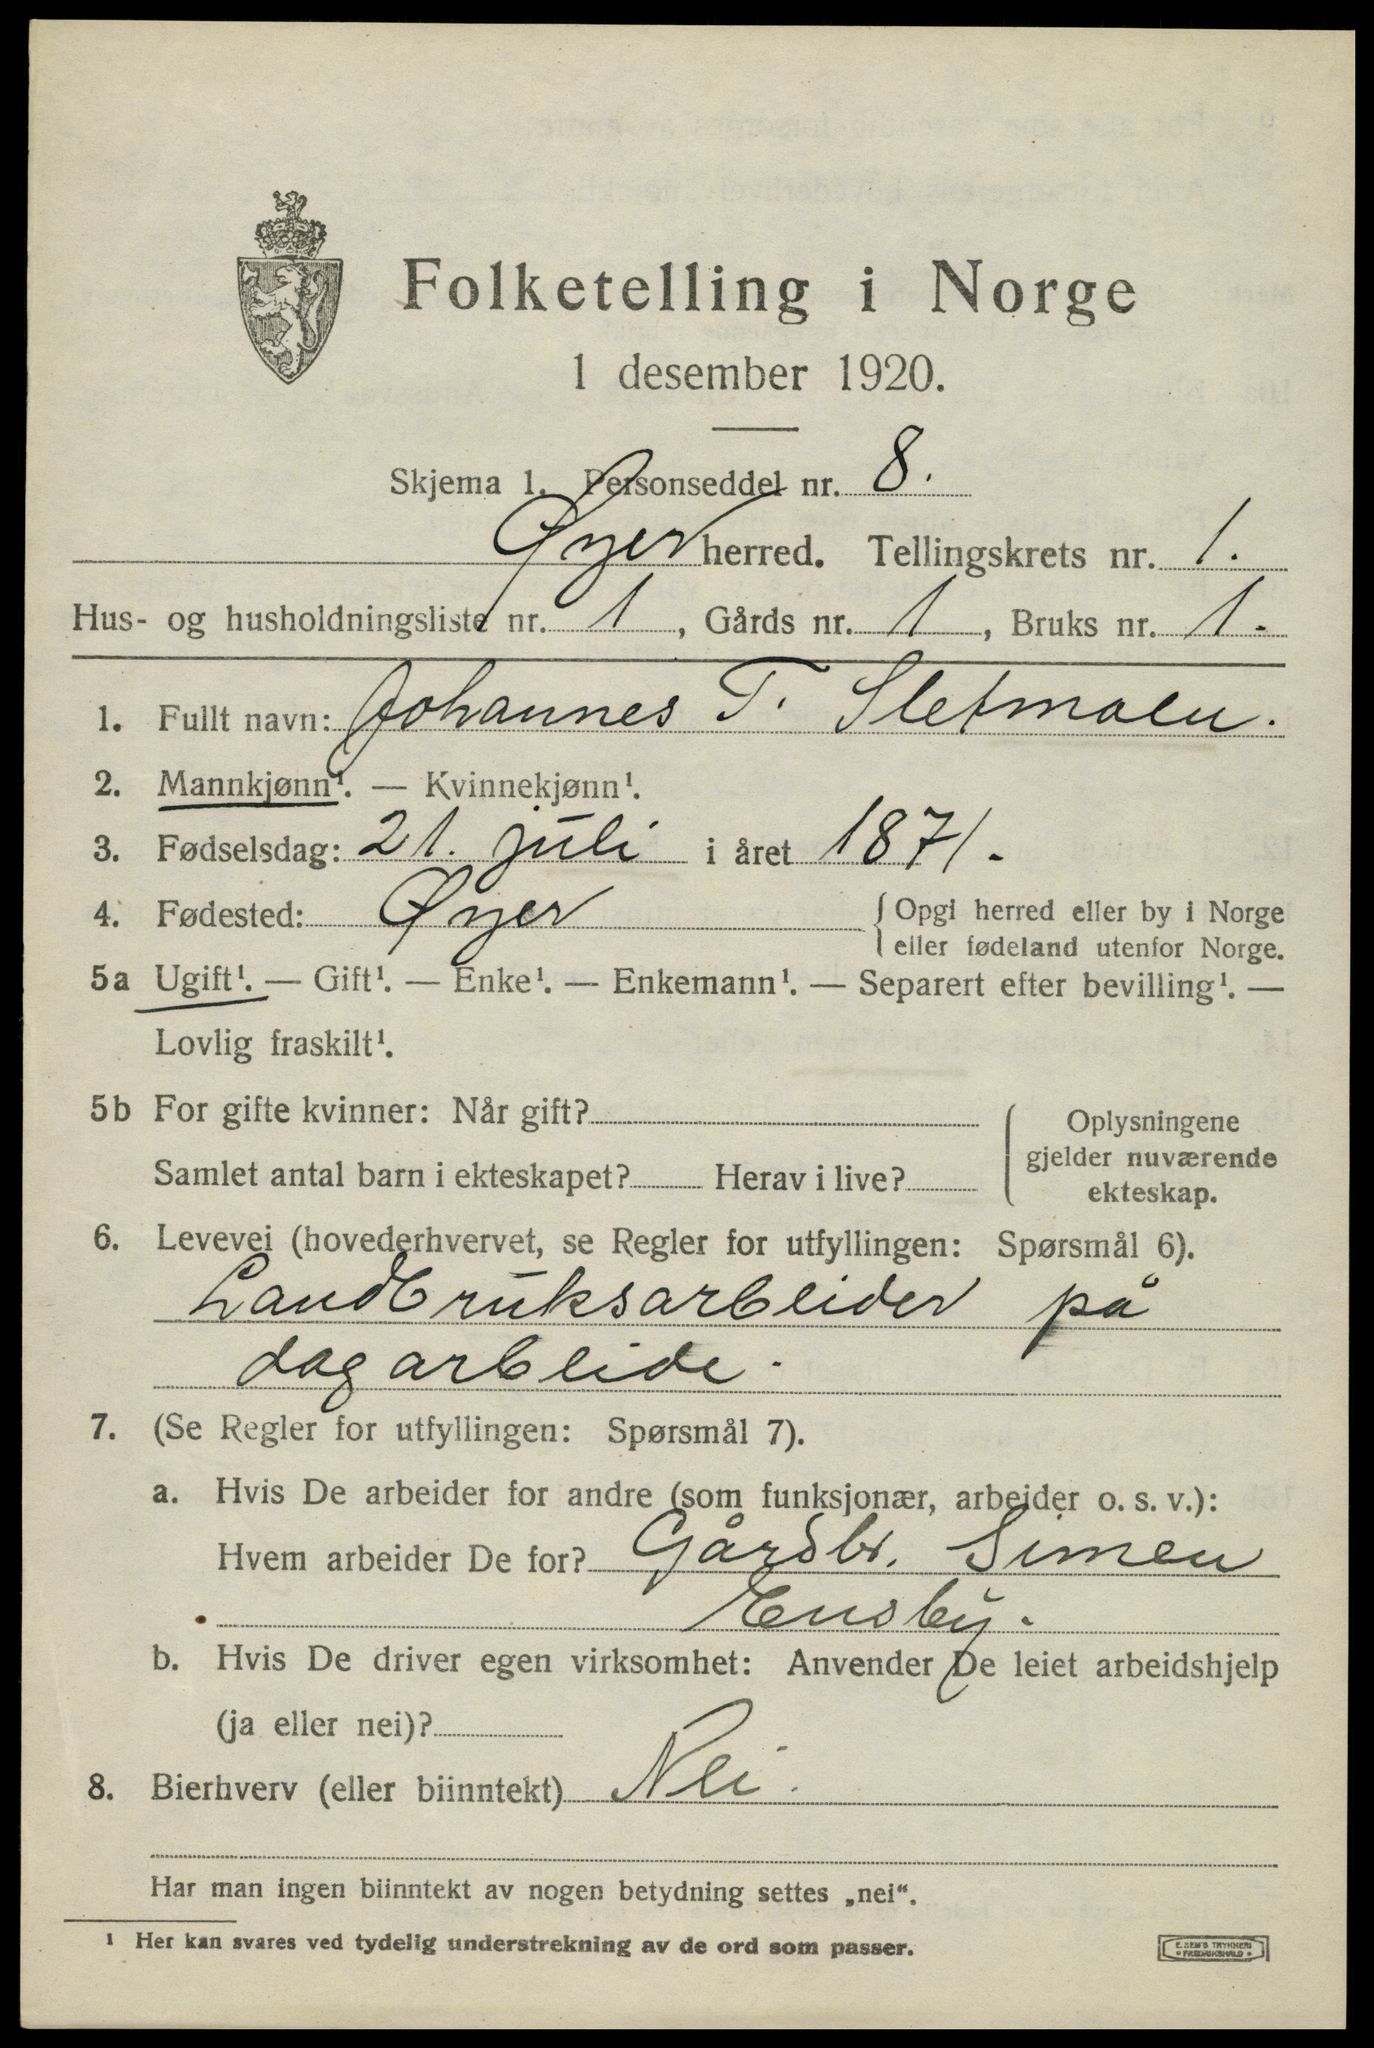 Folketelling i Norge
1 desember 1920.
Skjema 1. Personseddel nr. 8.
Øyer herred. Tellingskrets nr. 1.
Hus- og husholdningsliste nr. 1, Gårds nr. 1, Bruks nr. 1.
1. Fullt navn: Johannes T. Sletmoen.
2. Mannkjønn¹. — Kvinnekjønn¹.
3. Fødselsdag: 21. juli i året 1871.
4. Fødested: Øyer {Opgi herred eller by i Norge
eller fødeland utenfor Norge.
5a Ugift¹. — Gift¹. — Enke¹. — Enkemann¹. — Separert efter bevilling¹. —
Lovlig fraskilt¹.
5b For gifte kvinner: Når gift?
Samlet antal barn i ekteskapet? Herav i live?
Oplysningene
gjelder nuværende
ekteskap.
6. Levevei (hovederhvervet, se Regler for utfyllingen: Spørsmål 6).
Landbruksarbeider på
dagarbeide.
7. (Se Regler for utfyllingen: Spørsmål 7).
a. Hvis De arbeider for andre (som funksjonær, arbeider o. s. v.):
Hvem arbeider De for? Gårdbr. Simen
Ensby.
b. Hvis De driver egen virksomhet: Anvender De leiet arbeidshjelp
(ja eller nei)?
8. Bierhverv (eller biinntekt) Nei.
Har man ingen biinntekt av nogen betydning settes „nei“.
¹ Her kan svares ved tydelig understrekning av de ord som passer.
E. SEM'S TRYKKERI
• FREDRIKSHALD •